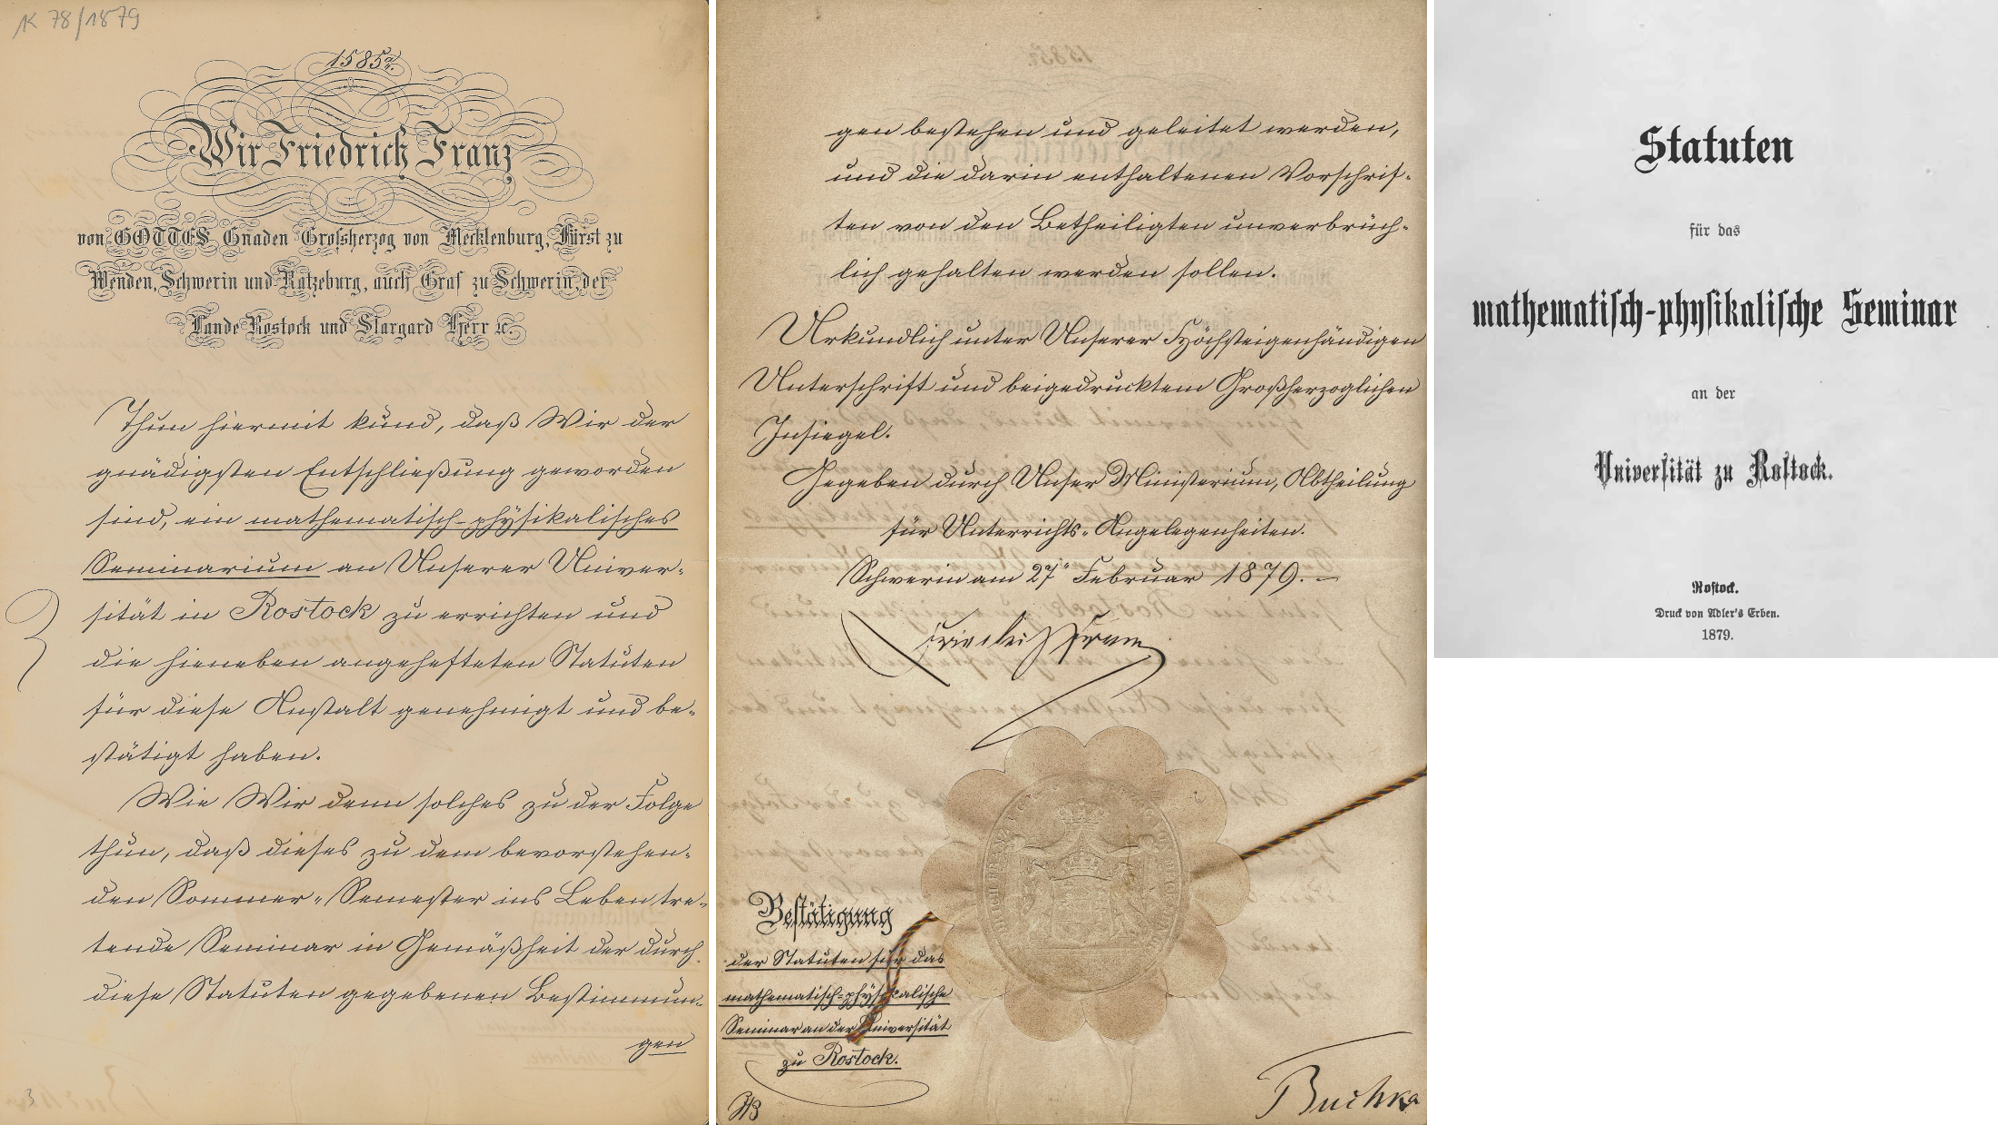 K 78/1879
1585a/π.
Wir Friedrich Franz
von GOTTES Gnaden Großherzog von Mecklenburg, Fürst zu
Wenden, Schwerin und Ratzeburg, auch Graf zu Schwerin, der
Lande Rostock und Stargard Herr ꝛc.
Thun hiermit kund, daß Wir der
gnädigsten Entschließung geworden
sind, ein mathematisch-physikalisches
Seminarium an Unserer Univer-
sität in Rostock zu errichten und
die hieneben angehefteten Statuten
für diese Anstalt genehmigt und be-
stätigt haben.
Wie Wir denn solches zu der Folge
thun, daß dieses zu dem bevorstehen-
den Sommer-Semester ins Leben tre-
tende Seminar in Gemäßheit der durch
diese Statuten gegebenen Bestimmun-
gen
3
gen bestehen und geleitet werden,
und die darin enthaltenen Vorschrif-
ten von den Betheiligten unverbrüch-
lich gehalten werden sollen.
Urkundlich unter Unserer Höchsteigenhändigen
Unterschrift und beigedrucktem Großherzoglichen
Insiegel.
Gegeben durch Unser Ministerium, Abtheilung
für Unterrichts-Angelegenheiten.
Schwerin am 27. Februar 1879. –
Friedrich Franz
Bestätigung
der Statuten für das
mathematisch-physikalische
Seminar an der Universität
zu Rostock.
Buchka
Statuten
für das
mathematiſch-phyſikaliſche Seminar
an der
Univerſität zu Roſtock.
Roſtock.
Druck von Adler's Erben.
1879.